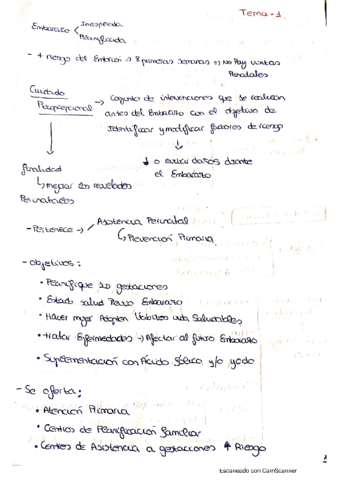 Tema - 1
Embarazo < Inesperado
Planificado
- + riesgo del Embrión → 8 primeras semanas ⇒ No Hay visitas
Prenatales
Cuidado
Preconcepcional → conjunto de intervenciones que se realizan
antes del Embarazo con el objetivo de
identificar y modificar factores de riesgo
↓ o evitar daños durante
el Embarazo
finalidad
↳ mejorar los resultados
Perinatales
- Pertenece → Asistencia Perinatal
↳ Prevención Primaria
- Objetivos:
• Planifique sus gestaciones
• Estado salud Previo Embarazo
• Hacer mujer Adopten Hábitos vida Saludables
• tratar Enfermedades → Afectar al futuro Embarazo
• Suplementación con Ácido fólico y/o yodo
- Se oferta:
• Atención Primaria
• Centros de Planificación familiar
• Centros de Asistencia a gestaciones ↑ Riesgo
1
Escaneado con CamScanner